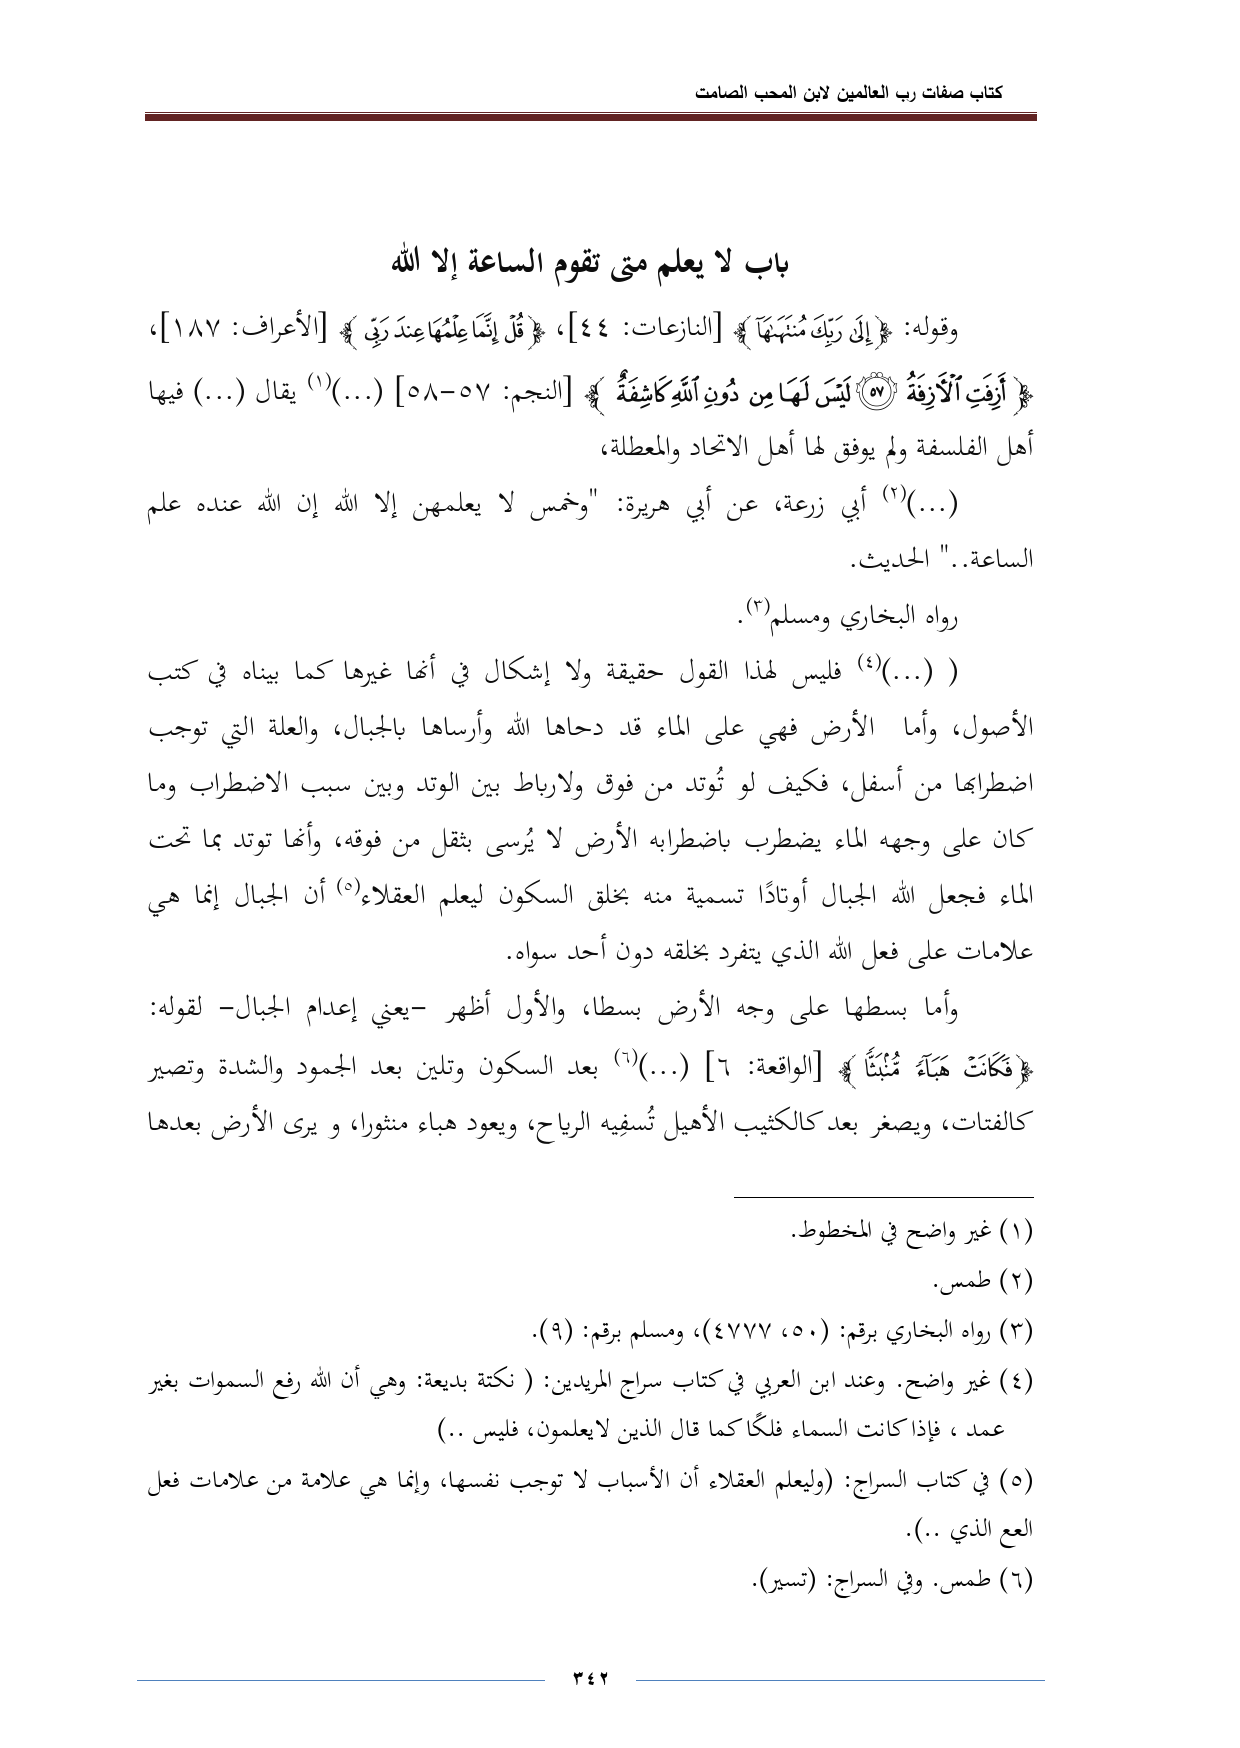 كتاب صفات رب العالمين لابن المحب الصامت
باب لا يعلم متى تقوم الساعة إلا الله
وقوله: ﴿إِلَىٰ رَبِّكَ مُنتَهَىٰهَآ﴾ [النازعات: ٤٤]، ﴿قُلْ إِنَّمَا عِلْمُهَا عِندَ رَبِّى﴾ [الأعراف: ١٨٧]،
﴿أَزِفَتِ ٱلْأَزِفَةُ ٥٧ لَيْسَ لَهَا مِن دُونِ ٱللَّهِ كَاشِفَةٌ﴾ [النجم: ٥٧-٥٨] (...)(١) يقال (...) فيها
أهل الفلسفة ولم يوفق لها أهل الاتحاد والمعطلة،
(...)(٢) أبي زرعة، عن أبي هريرة: "وخمس لا يعلمهن إلا الله إن الله عنده علم
الساعة.." الحديث.
رواه البخاري ومسلم(٣).
( (...)(٤) فليس لهذا القول حقيقة ولا إشكال في أنها غيرها كما بيناه في كتب
الأصول، وأما الأرض فهي على الماء قد دحاها الله وأرساها بالجبال، والعلة التي توجب
اضطرابها من أسفل، فكيف لو تُوتد من فوق ولارباط بين الوتد وبين سبب الاضطراب وما
كان على وجهه الماء يضطرب باضطرابه الأرض لا يُرسى بثقل من فوقه، وأنها توتد بما تحت
الماء فجعل الله الجبال أوتادًا تسمية منه بخلق السكون ليعلم العقلاء(٥) أن الجبال إنما هي
علامات على فعل الله الذي يتفرد بخلقه دون أحد سواه.
وأما بسطها على وجه الأرض بسطا، والأول أظهر -يعني إعدام الجبال- لقوله:
﴿فَكَانَتْ هَبَآءً مُّنۢبَثًّا﴾ [الواقعة: ٦] (...)(٦) بعد السكون وتلين بعد الجمود والشدة وتصير
كالفتات، ويصغر بعد كالكثيب الأهيل تُسفِيه الرياح، ويعود هباء منثورا، و يرى الأرض بعدها
(١) غير واضح في المخطوط.
(٢) طمس.
(٣) رواه البخاري برقم: (٥٠، ٤٧٧٧)، ومسلم برقم: (٩).
(٤) غير واضح. وعند ابن العربي في كتاب سراج المريدين: ( نكتة بديعة: وهي أن الله رفع السموات بغير
عمد ، فإذا كانت السماء فلكًا كما قال الذين لايعلمون، فليس ..)
(٥) في كتاب السراج: (وليعلم العقلاء أن الأسباب لا توجب نفسها، وإنما هي علامة من علامات فعل
العع الذي ..).
(٦) طمس. وفي السراج: (تسير).
٣٤٢